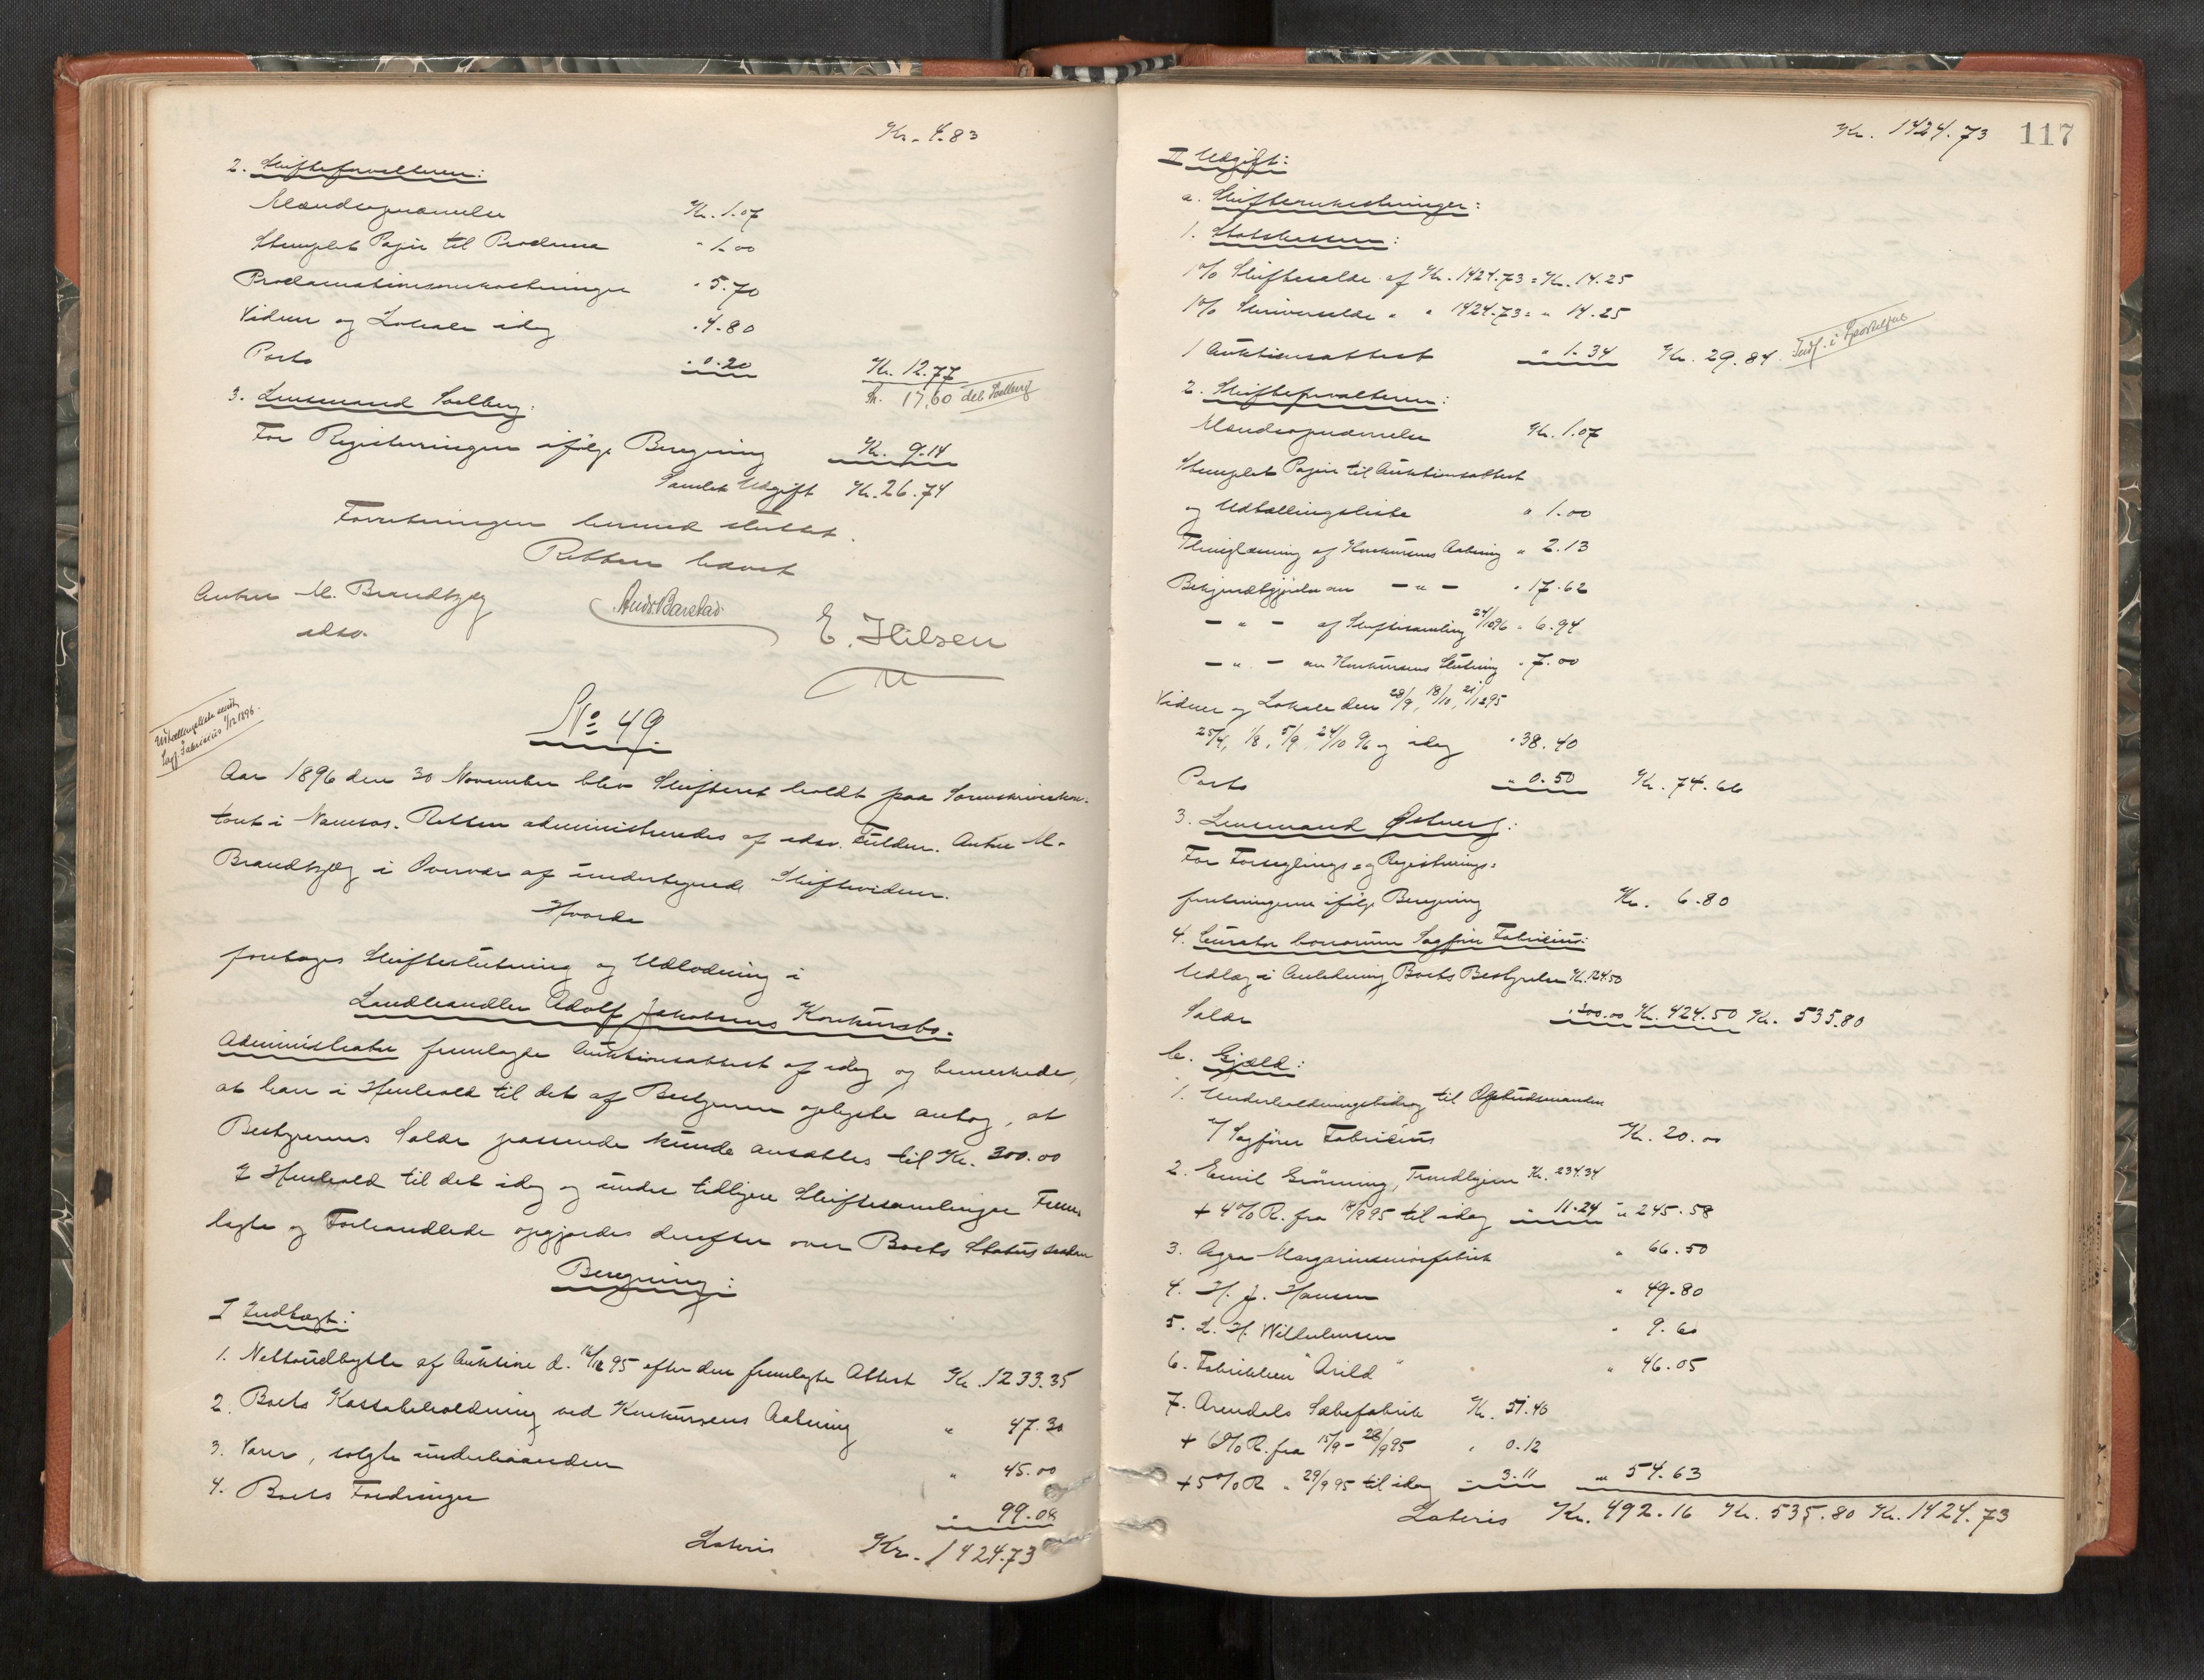 Kr. 4.83
2. Skifteforvalteren:
Mandsopnævnelse Kr. 1.07
Stemplet Papir til Proclama " 1.00
Proclamationsomkostninger " 5.70
Vidner og Lokale idag " 4.80
Porto " 0.20 Kr. 12.77
Kr. 17,60 del. Soelberg
3. Lensmand Soelberg:
For Registreringen ifølge Beregning Kr. 9.14
Samlet Udgift Kr. 26.74
Forretningen hermed sluttet.
Retten hævet
Anton M. Brandtzæg
edsv.
Ands. Barstad
E. Hilsen
Udtællingsliste sendt
Sagf. Fabricius 1/12 1896.
No 49
Aar 1896 den 30 November blev Skifteret holdt paa Sorenskriverkon-
toret i Namsos. Retten administreredes af edsv. Fuldm. Anton M.
Brandtzæg i Overvær af undertegnede Skiftevidner.
Hvorda
foretoges Skifteslutning og Udlodning i
Landhandler Adolf Jakobsens Konkursbo.
Administrator fremlagte Auktionsattest af idag og bemerkede,
at han i Henhold til det af Bestyreren oplyste antog, at
Bestyrerens Salær passende kunde ansættes til Kr. 300.00
I Henhold til det idag og under tidligere Skiftesamlinger Frem-
lagte og Forhandlede opgjordes derefter over Boets Status saadan
Beregning:
I Indtægt:
1. Nettoudbytte af Auktion d. 16/12 95 efter den fremlagte Attest Kr. 1233.35
2. Boets Kassabeholdning ved Konkursens Aabning " 47.30
3. Varer, solgte underhaanden " 45.00
4. Boets Fordringer " 99.08
Lateris Kr. 1424.73
Kr. 1424.73 117
II Udgift:
a. Skifteomkostninger:
1. Statskassen:
1% Skiftesalær af Kr. 1424.73 = Kr. 14.25
1% Skriversalær " " 1424.73 = " 14.25
1 Auktionsattest " 1.34 Kr. 29.84 Indf. i Sporteljour
2. Skifteforvalteren:
Mandsopnævnelse Kr. 1.07
Stemplet Papir til Auktionsattest
og Udtællingsliste " 1.00
Thinglæsning af Konkursens Aabning " 2.13
Bekjendtgjørelse om — " — " 17.62
— " — af Skiftesamling 24/10 96 " 6.94
— " — om Konkursens Slutning " 7.00
Vidner og Lokale den 28/9, 18/10, 21/12 95
25/4, 1/8, 5/9, 24/10 96 og idag " 38.40
Porto " 0.50 Kr. 74.66
3. Lensmand
For Forseglings- og Registrerings-
forretningerne ifølge Beregning Kr. 6.80
4. Curator bonorum Sagfører Fabricius:
Udlæg i Anledning Boets Bestyrelse Kr. 124.50
Salær " 300.00 Kr. 424.50 Kr. 535.80
b. Gjæld:
1. Underholdningsbidrag til Opbudsmanden
v/ Sagfører Fabricius Kr. 20.00
2. Emil Grønning, Trondhjem Kr. 234.34
+ 4% R. fra 18/9 95 til idag " 11.24 " 245.58
3. Agra Margarinsmørfabrik " 66.50
4. H. J. Hansen " 49.80
5. L. H. Wilhelmsen " 9.60
6. Fabrikken "Arild" " 46.05
7. Arendals Sæbefabrik Kr. 51.40
+ 6% R. fra 15/9 - 28/9 95 " 0.12
+ 5% R " 29/9 95 til idag " 3.11 " 54.63
Lateris Kr. 492.16 Kr. 535.80 Kr. 1424.73